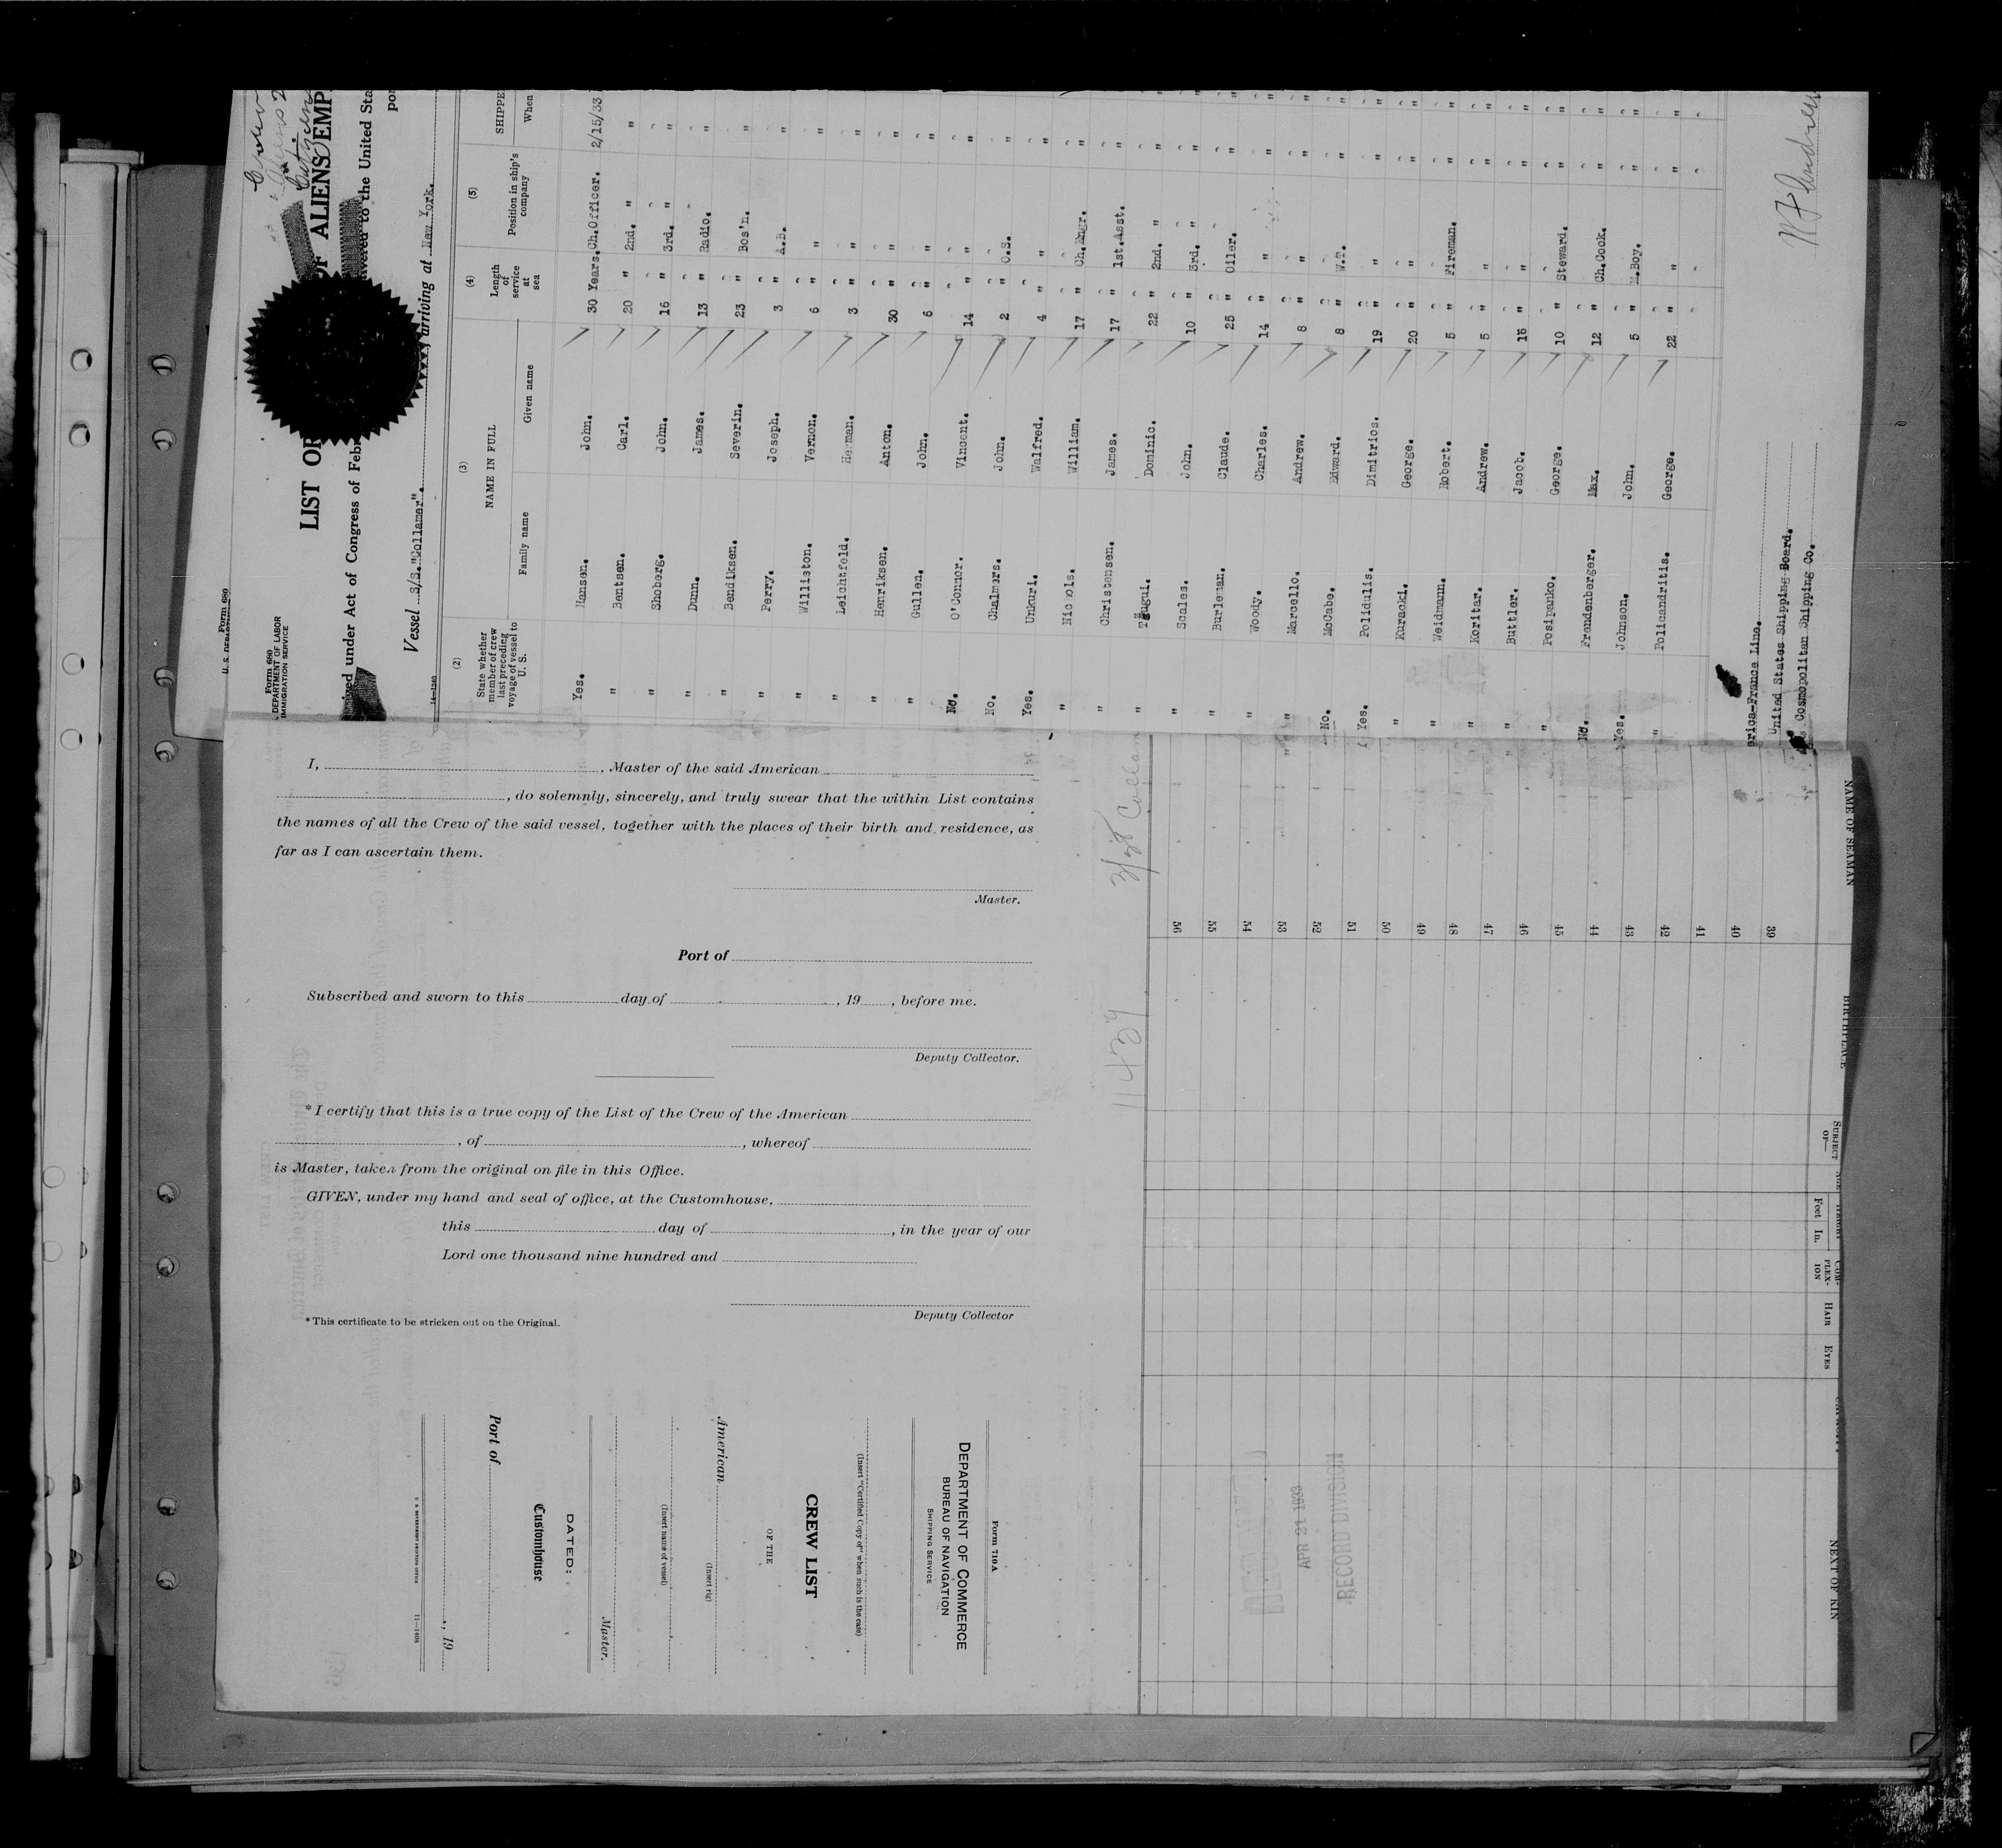 Form 680
U. S. DEPARTMENT
Form 680
DEPARTMENT OF LABOR
IMMIGRATION SERVICE
LIST OF ALIENS EMP
under Act of Congress of Febr
to the United Sta
Vessel S/S."Collamer". arriving at New York.
(2) (3) (4) (5)
State whether member of crew last preceding voyage of vessel to U. S. NAME IN FULL Length of service at sea Position in ship's company SHIPPE
Family name Given name When
Yes. Hansen. John. 30 Years. Ch.Officer. 2/15/33
" Bentsen. Carl. 20 " 2nd. " "
" Shoberg. John. 16 " 3rd. " "
" Dunn. James. 13 " Radio. "
" Bendiksen. Severin. 23 " Bos'n. "
" Perry. Joseph. 3 " A.B. "
" Williston. Vernon. 6 " " "
" Leichtfeld. Herman. 3 " " "
" Henriksen. Anton. 30 " " "
" Gullen. John. 6 " " "
No. O'Connor. Vincent. 14 " " "
No. Chalmers. John. 2 " O.S. "
Yes. Unkuri. Walfred. 4 " " "
" Nichols. William. 17 " Ch.Engr. "
" Christensen. James. 17 " 1st.Asst. "
" Dominic. 22 " 2nd. " "
" Scales. John. 10 " 3rd. " "
" Burleman. Claude. 25 " Oiler. "
" Woody. Charles. 14 " " "
" Marcello. Andrew. 8 " " "
No. McCabe. Edward. 8 " W.T. "
Yes. Polidulis. Dimitrios. 19 " " "
" Kuracki. George. 20 " " "
" Weidmann. Robert. 5 " Fireman. "
" Koritar. Andrew. 5 " " "
" Buttler. Jacob. 16 " " "
" Posipanko. George. 10 " Steward. "
No. Frendenberger. Max. 12 " Ch.Cook. "
Yes. Johnson. John. 5 " M.Boy. "
" Policandritis. George. 22 " " "
erica-France Line.
United States Shipping Board.
Cosmopolitan Shipping Co.
I, , Master of the said American
, do solemnly, sincerely, and truly swear that the within List contains
the names of all the Crew of the said vessel, together with the places of their birth and residence, as
far as I can ascertain them.
Master.
Port of
Subscribed and sworn to this day of , 19 , before me.
Deputy Collector.
* I certify that this is a true copy of the List of the Crew of the American
, of , whereof
is Master, taken from the original on file in this Office.
GIVEN, under my hand and seal of office, at the Customhouse,
this day of , in the year of our
Lord one thousand nine hundred and
Deputy Collector
* This certificate to be stricken out on the Original.
Form 710 A
DEPARTMENT OF COMMERCE
BUREAU OF NAVIGATION
SHIPPING SERVICE
(Insert "Certified Copy of" when such is the case)
CREW LIST
OF THE
American
(Insert rig)
(Insert name of vessel)
Master.
DATED:
Customhouse
Port of
, 19
U. S. GOVERNMENT PRINTING OFFICE 11-1408
NAME OF SEAMAN BIRTHPLACE SUBJECT OF— Feet In. COM-PLEX-ION HAIR EYES NEXT OF KIN
39
40
41
42
43
44
45
46
47
48
49
50
51
52
53
54
55
56
APR 21 1933
RECORD DIVISION